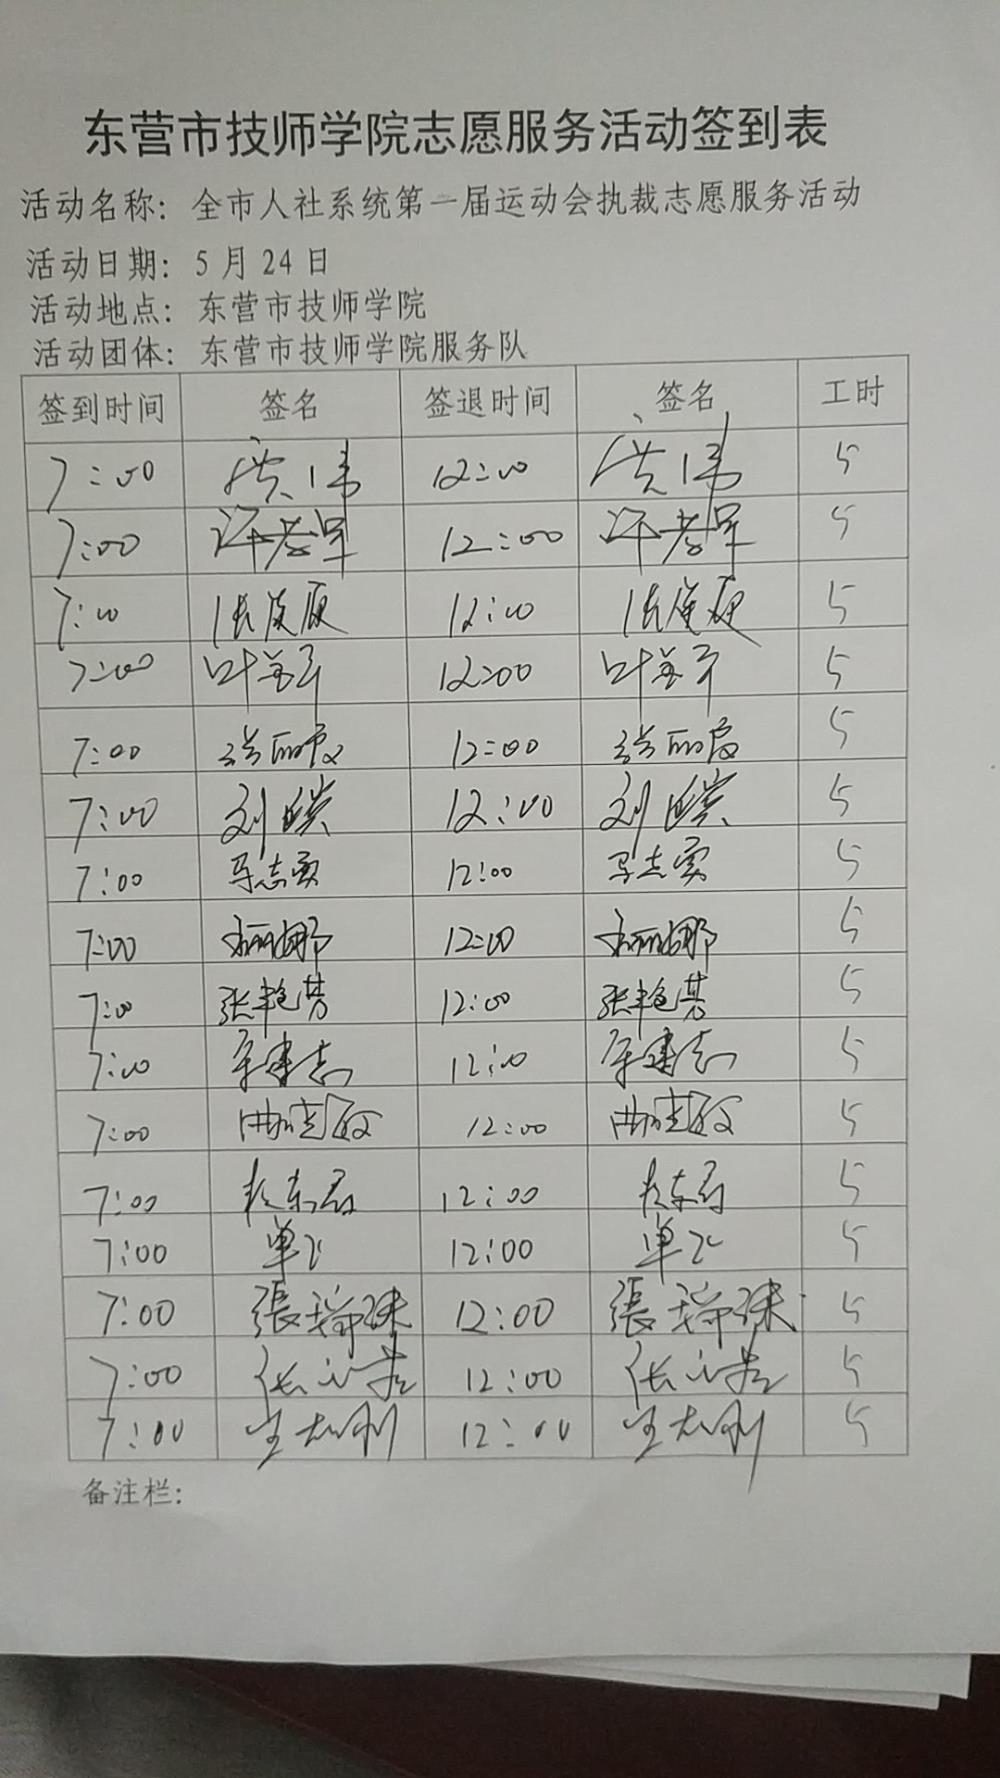 东营市技师学院志愿服务活动签到表
活动名称：全市人社系统第一届运动会执裁志愿服务活动
活动日期：5月24日
活动地点：东营市技师学院
活动团体：东营市技师学院服务队
签到时间 签名 签退时间 签名 工时
7:00 洪伟 12:00 洪伟 5
7:00 许孝军 12:00 许孝军 5
7:00 12:00 5
7:00 12:00 5
7:00 张丽霞 12:00 张丽霞 5
7:00 刘 12:00 刘 5
7:00 马志实 12:00 马志实 5
7:00 丽娜 12:00 丽娜 5
7:00 张艳芳 12:00 张艳芳 5
7:00 建志 12:00 建志 5
7:00 曲 12:00 曲 5
7:00 12:00 5
7:00 单飞 12:00 单飞 5
7:00 張瑞珠 12:00 張瑞珠 5
7:00 12:00 5
7:00 王志刚 12:00 王志刚 5
备注栏：